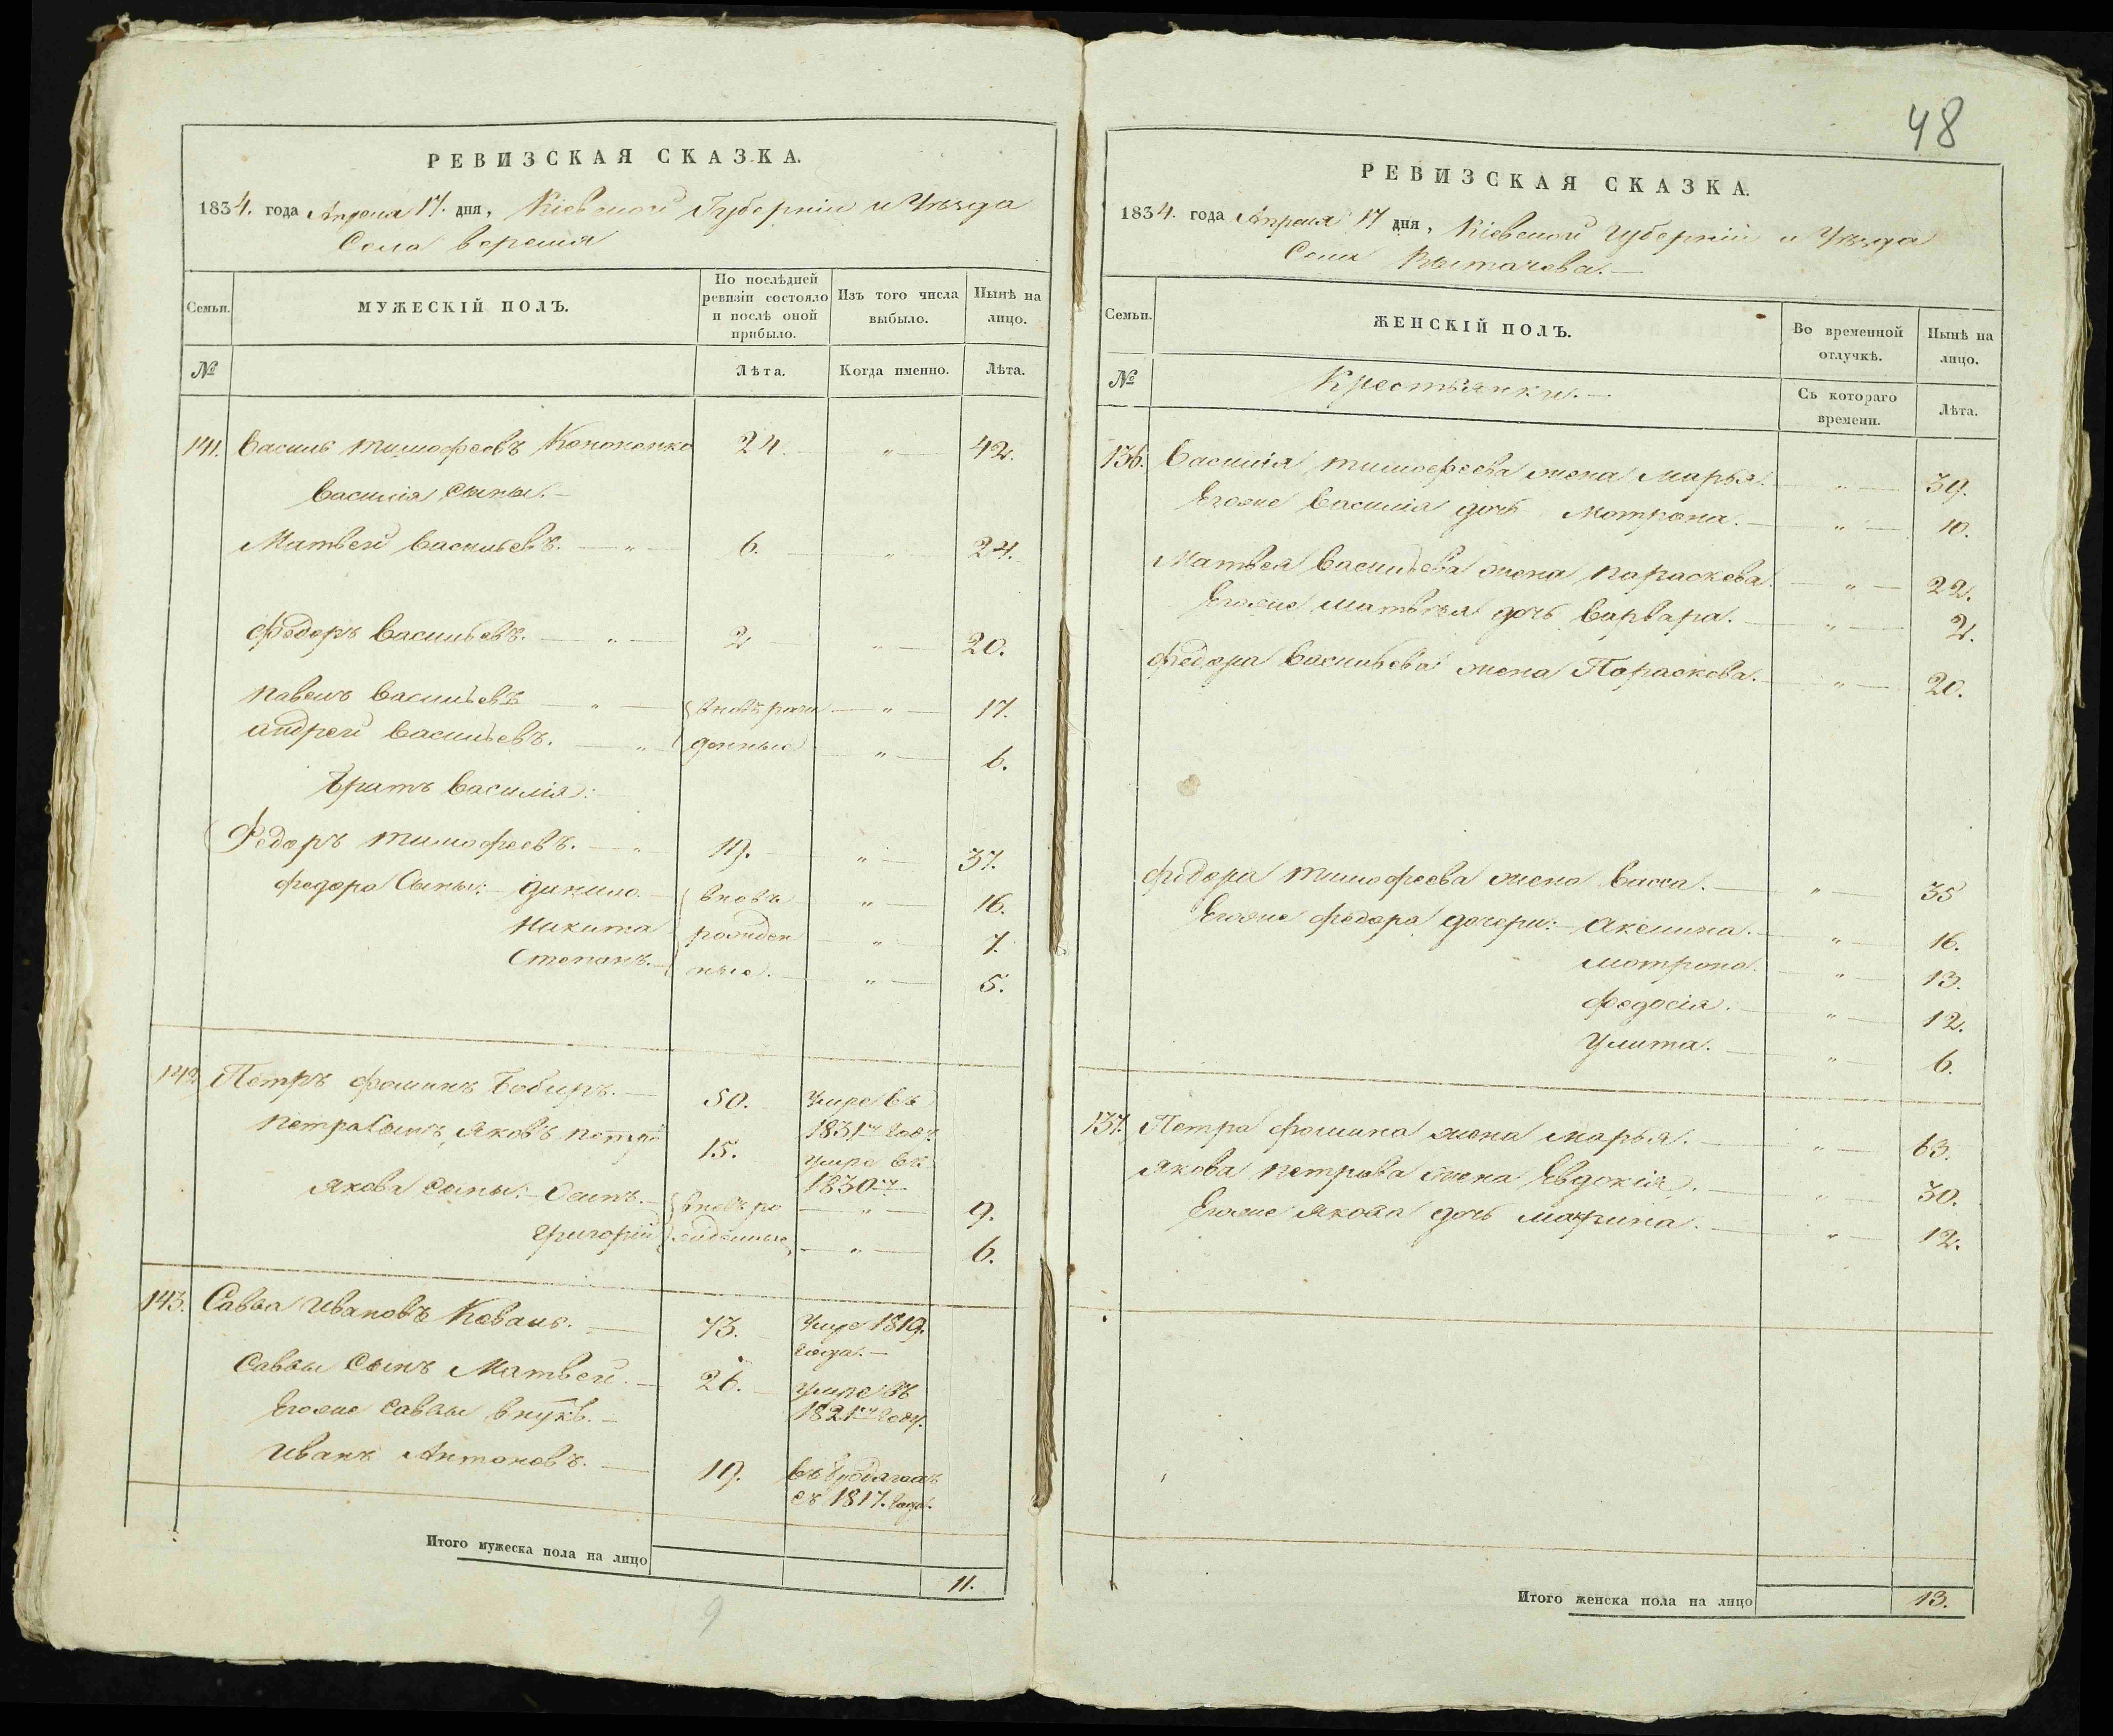 РЕВИЗСКАЯ СКАЗКА.
1834. года Апреля 17. дня, Кіевской Губерніи и Уѣзда
Села
Семьи.
МУЖЕСКІЙ ПОЛЪ.
По послѣдней ревизіи состояло и послѣ оной прибыло.
Изъ того числа выбыло.
Нынѣ на лицо.
№
Лѣта.
Когда именно.
Лѣта.
141. Василь Тимофеевъ Кононенко 24. " 42.
Василія сыны.
Матвей Васильевъ. " 6. " 24.
Федоръ Васильевъ. " 2 " 20.
Павелъ Васильевъ " вновь рож " 17.
Андрей Васильевъ. " денные " 6.
Братъ Василія:
Федоръ Тимофеевъ. " 19. " 37.
Федора Сыны: Данило. вновь " 16.
Никита рожден " 7.
Степанъ. ные. " 5.
142. Петръ Фоминъ Бобиръ. 50. Умре въ
1831м году.
Петра Сынъ Яковъ 15. умре въ
1830м
Якова сыны: Осипъ. вновь ро " 9.
Григорій жденные " 6.
143. Савва Ивановъ Коваль. 73. Умре 1819.
года.
Саввы Сынъ Матвей. 26. умре въ
1821м году.
Егоже Саввы внукъ.
Иванъ Антоновъ. 19. въ бродягахъ
съ 1817. года.
Итого мужеска пола на лицо 11.
9
48
РЕВИЗСКАЯ СКАЗКА.
1834. года Апреля 17 дня, Кіевской Губерніи и Уѣзда
Села Вытачова.
Семьи.
ЖЕНСКІЙ ПОЛЪ.
Во временной отлучкѣ.
Нынѣ на лицо.
№
Крестьянки.
Съ котораго времени.
Лѣта.
136. Василія Тимофеева жена Марья. " 39.
Егоже Василія дочь Мотрона. " 10.
Матвея Васильева жена Параскева. " 22.
Егоже Матвѣя дочь Варвара. " 2.
Федора Васильева жена Параскева. " 20.
Федора Тимофеева жена Васса. " 35
Егоже Федора дочери: Аксинина. " 16.
Мотрона. " 13.
Федосія. " 12.
Улита. " 6.
137. Петра Фомина жена Марья. " 63.
Якова Петрова жена Евдокія. " 30.
Егоже Якова дочь Марина. " 12.
Итого женска пола на лицо 13.